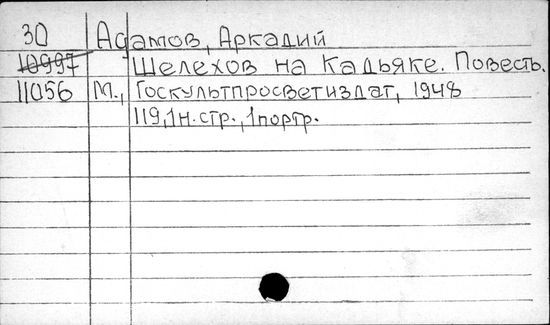 30 Адамов, Аркадий
10997 Шелехов на Кадьяке. Повесть.
11056 М., Госкультпросветиздат, 1948
119,1н.стр.,1портр.